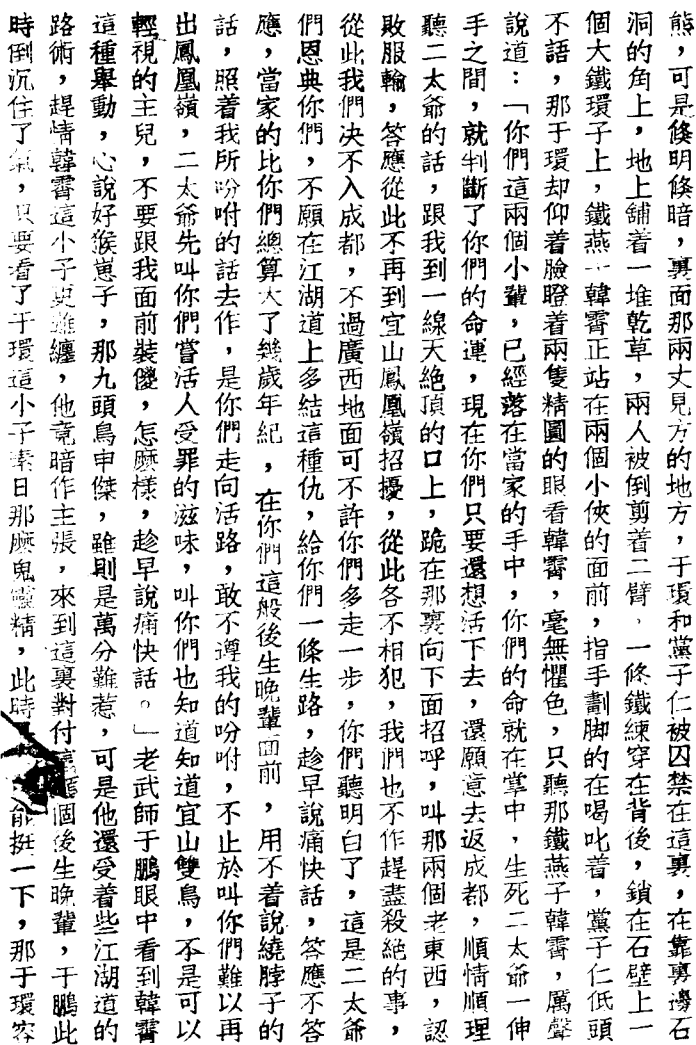 熊，可是倏明倏暗，裏面那兩丈見方的地方，于環和黨子仁被囚禁在這裏，在靠裏邊石
洞的角上，地上鋪着一堆乾草，兩人被倒剪着二臂，一條鐵練穿在背後，鎖在石壁上一
個大鐵環子上，鐵燕子韓霄正站在兩個小俠的面前，指手劃脚的在喝叱着，黨子仁低頭
不語，那于環却仰着臉瞪着兩隻精圓的眼看韓霄，毫無懼色，只聽那鐵燕子韓霄，厲聲
說道：「你們這兩個小輩，已經落在當家的手中，你們的命就在掌中，生死二太爺一伸
手之間，就判斷了你們的命運，現在你們只要還想活下去，還願意去返成都，順情順理
聽二太爺的話，跟我到一線天絶頂的口上，跪在那裏向下面招呼，叫那兩個老東西，認
敗服輸，答應從此不再到宜山鳳凰嶺招擾，從此各不相犯，我們也不作趕盡殺絕的事，
從此我們决不入成都，不過廣西地面可不許你們多走一步，你們聽明白了，這是二太爺
們恩典你們，不願在江湖道上多結這種仇，給你們一條生路，趁早說痛快話，答應不答
應，當家的比你們總算大了幾歲年紀，在你們這般後生晚輩面前，用不着說繞脖子的
話，照着我所吩咐的話去作，是你們走向活路，敢不遵我的吩咐，不止於叫你們難以再
出鳳凰嶺，二太爺先叫你們嘗活人受罪的滋味，叫你們也知道知道宜山雙鳥，不是可以
輕視的主兒，不要跟我面前裝傻，怎麽樣，趁早說痛快話。」老武師于鵬眼中看到韓霄
這種舉動，心說好猴崽子，那九頭鳥申傑，雖則是萬分難惹，可是他還受着些江湖道的
路術，趕情韓霄這小子更難纏，他竟暗作主張，來到這裏對付這個後生晚輩，于鵬此
時倒沉住了氣，只要看了于環這小子素日那麽鬼靈精，此時能挺一下，那于環容